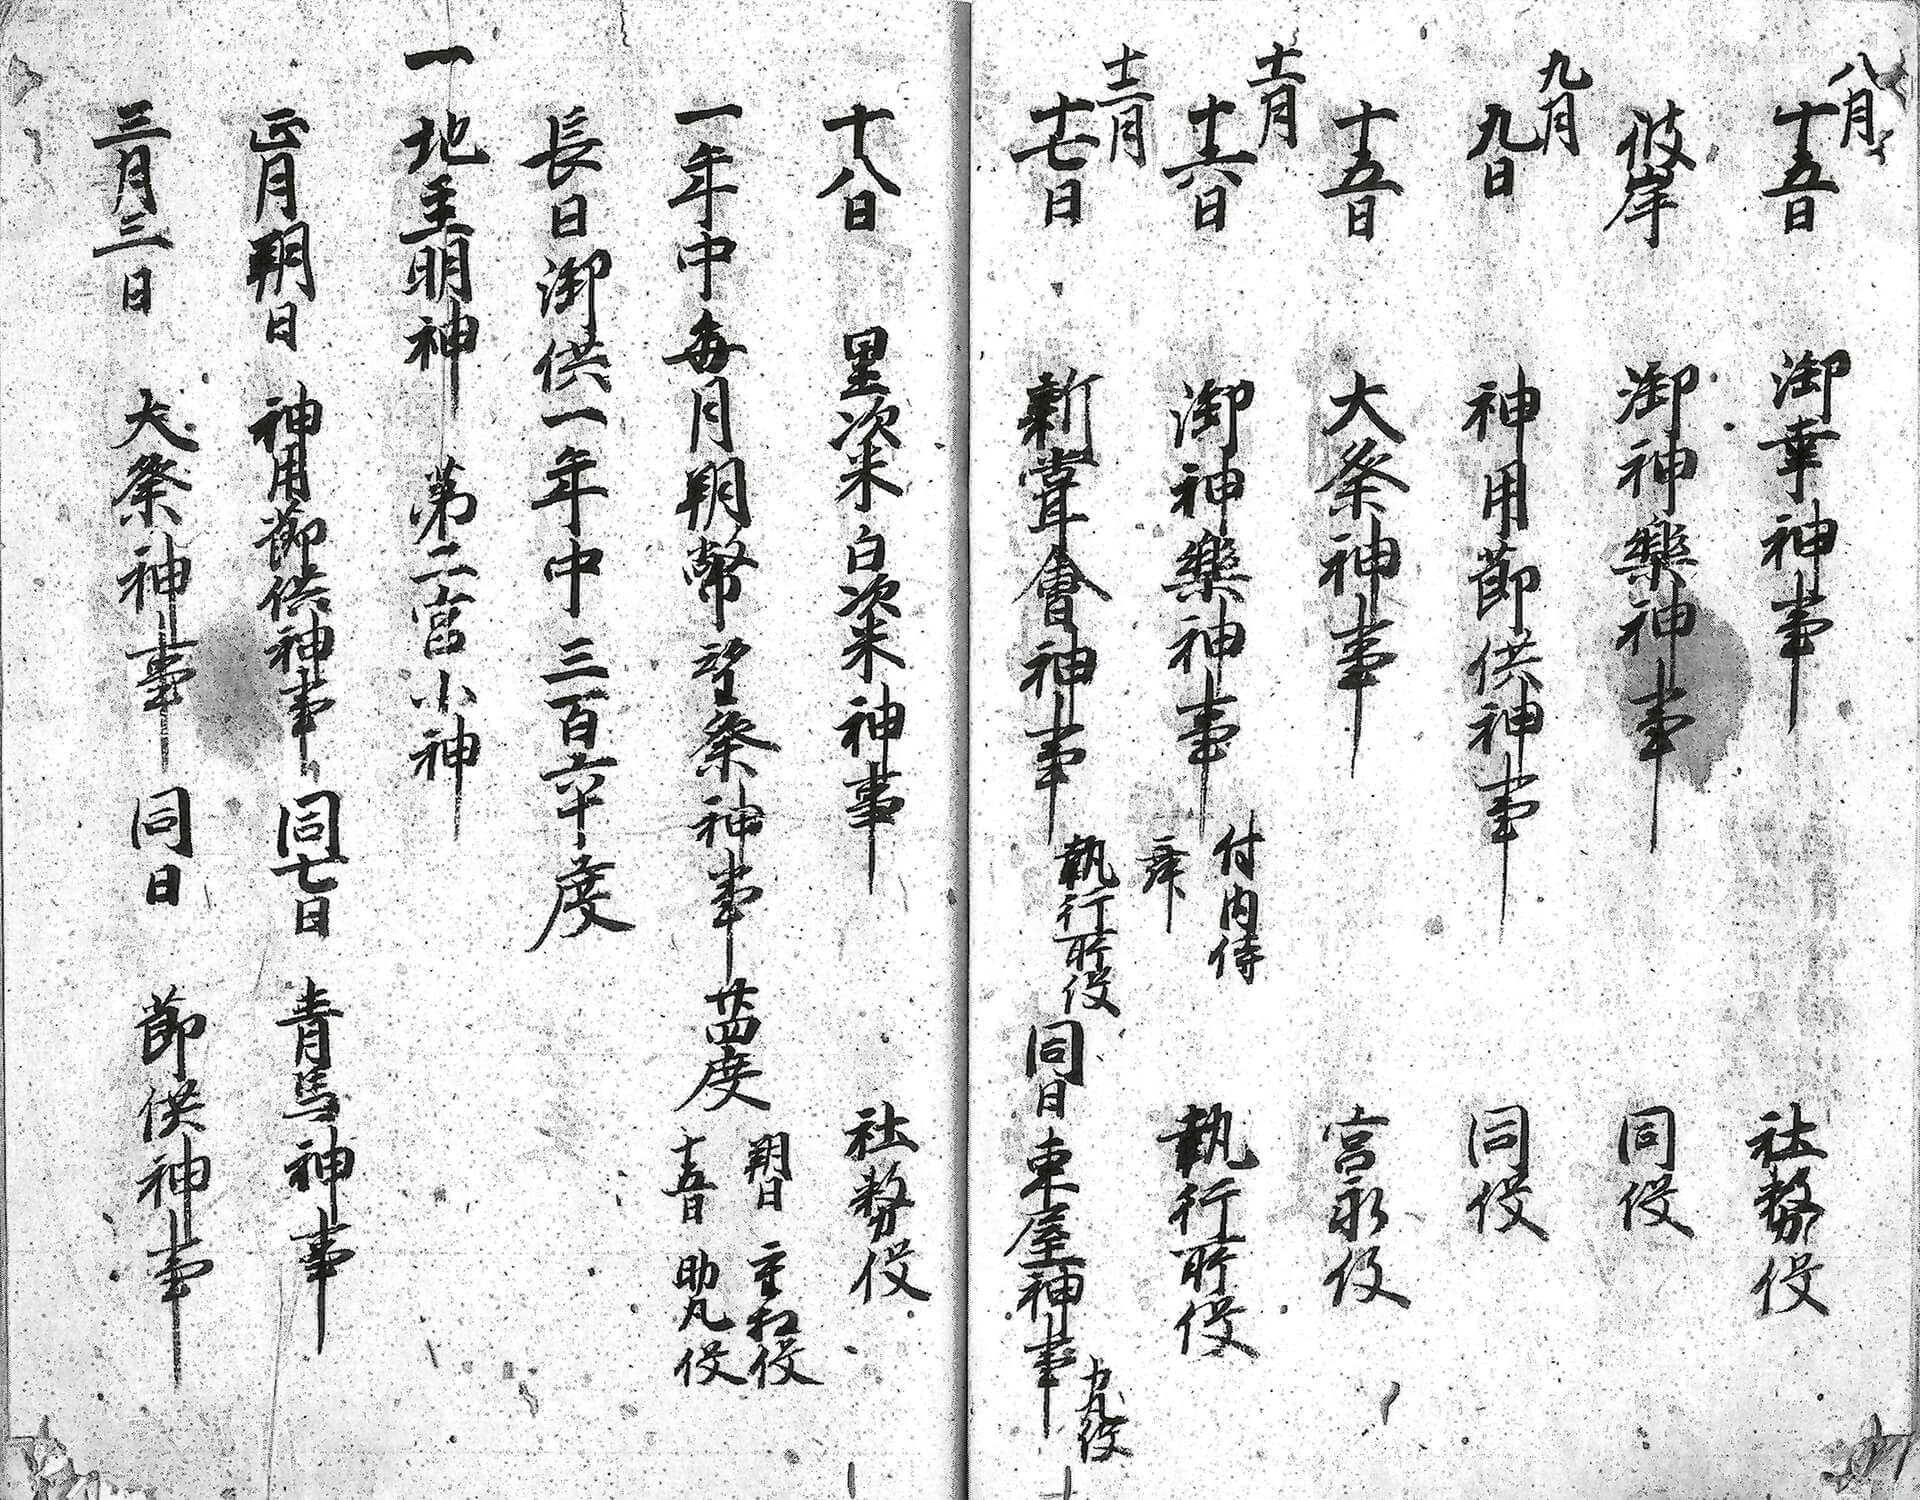 八月
十五日 御幸神事 社務役
彼岸 御神樂神事 同役
九月
九日 神用節供神事 同役
十五日 大祭神事 宮永役
十一月
十六日 御神樂神事 付内侍舞 執行所役
十二月
十七日 新嘗會神事 執行所役 同日 東屋神事
十八日 黒次米白次米神事 社務役
一年中毎月朔幣望祭神事 廿四度 朔日 主税役
十五日 助凡役
長日御供一年中三百六十度
一 地主明神 第二宮小神
正月朔日 神用節供神事 同七日 青馬神事
三月三日 大祭神事 同日 節供神事